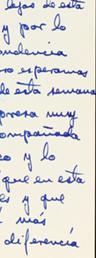 lejos de esta
y por lo
ondencia
ro esperamos
de esta semana
presa muy
compañada
co y lo
que en esta
es y que
más
diferencia